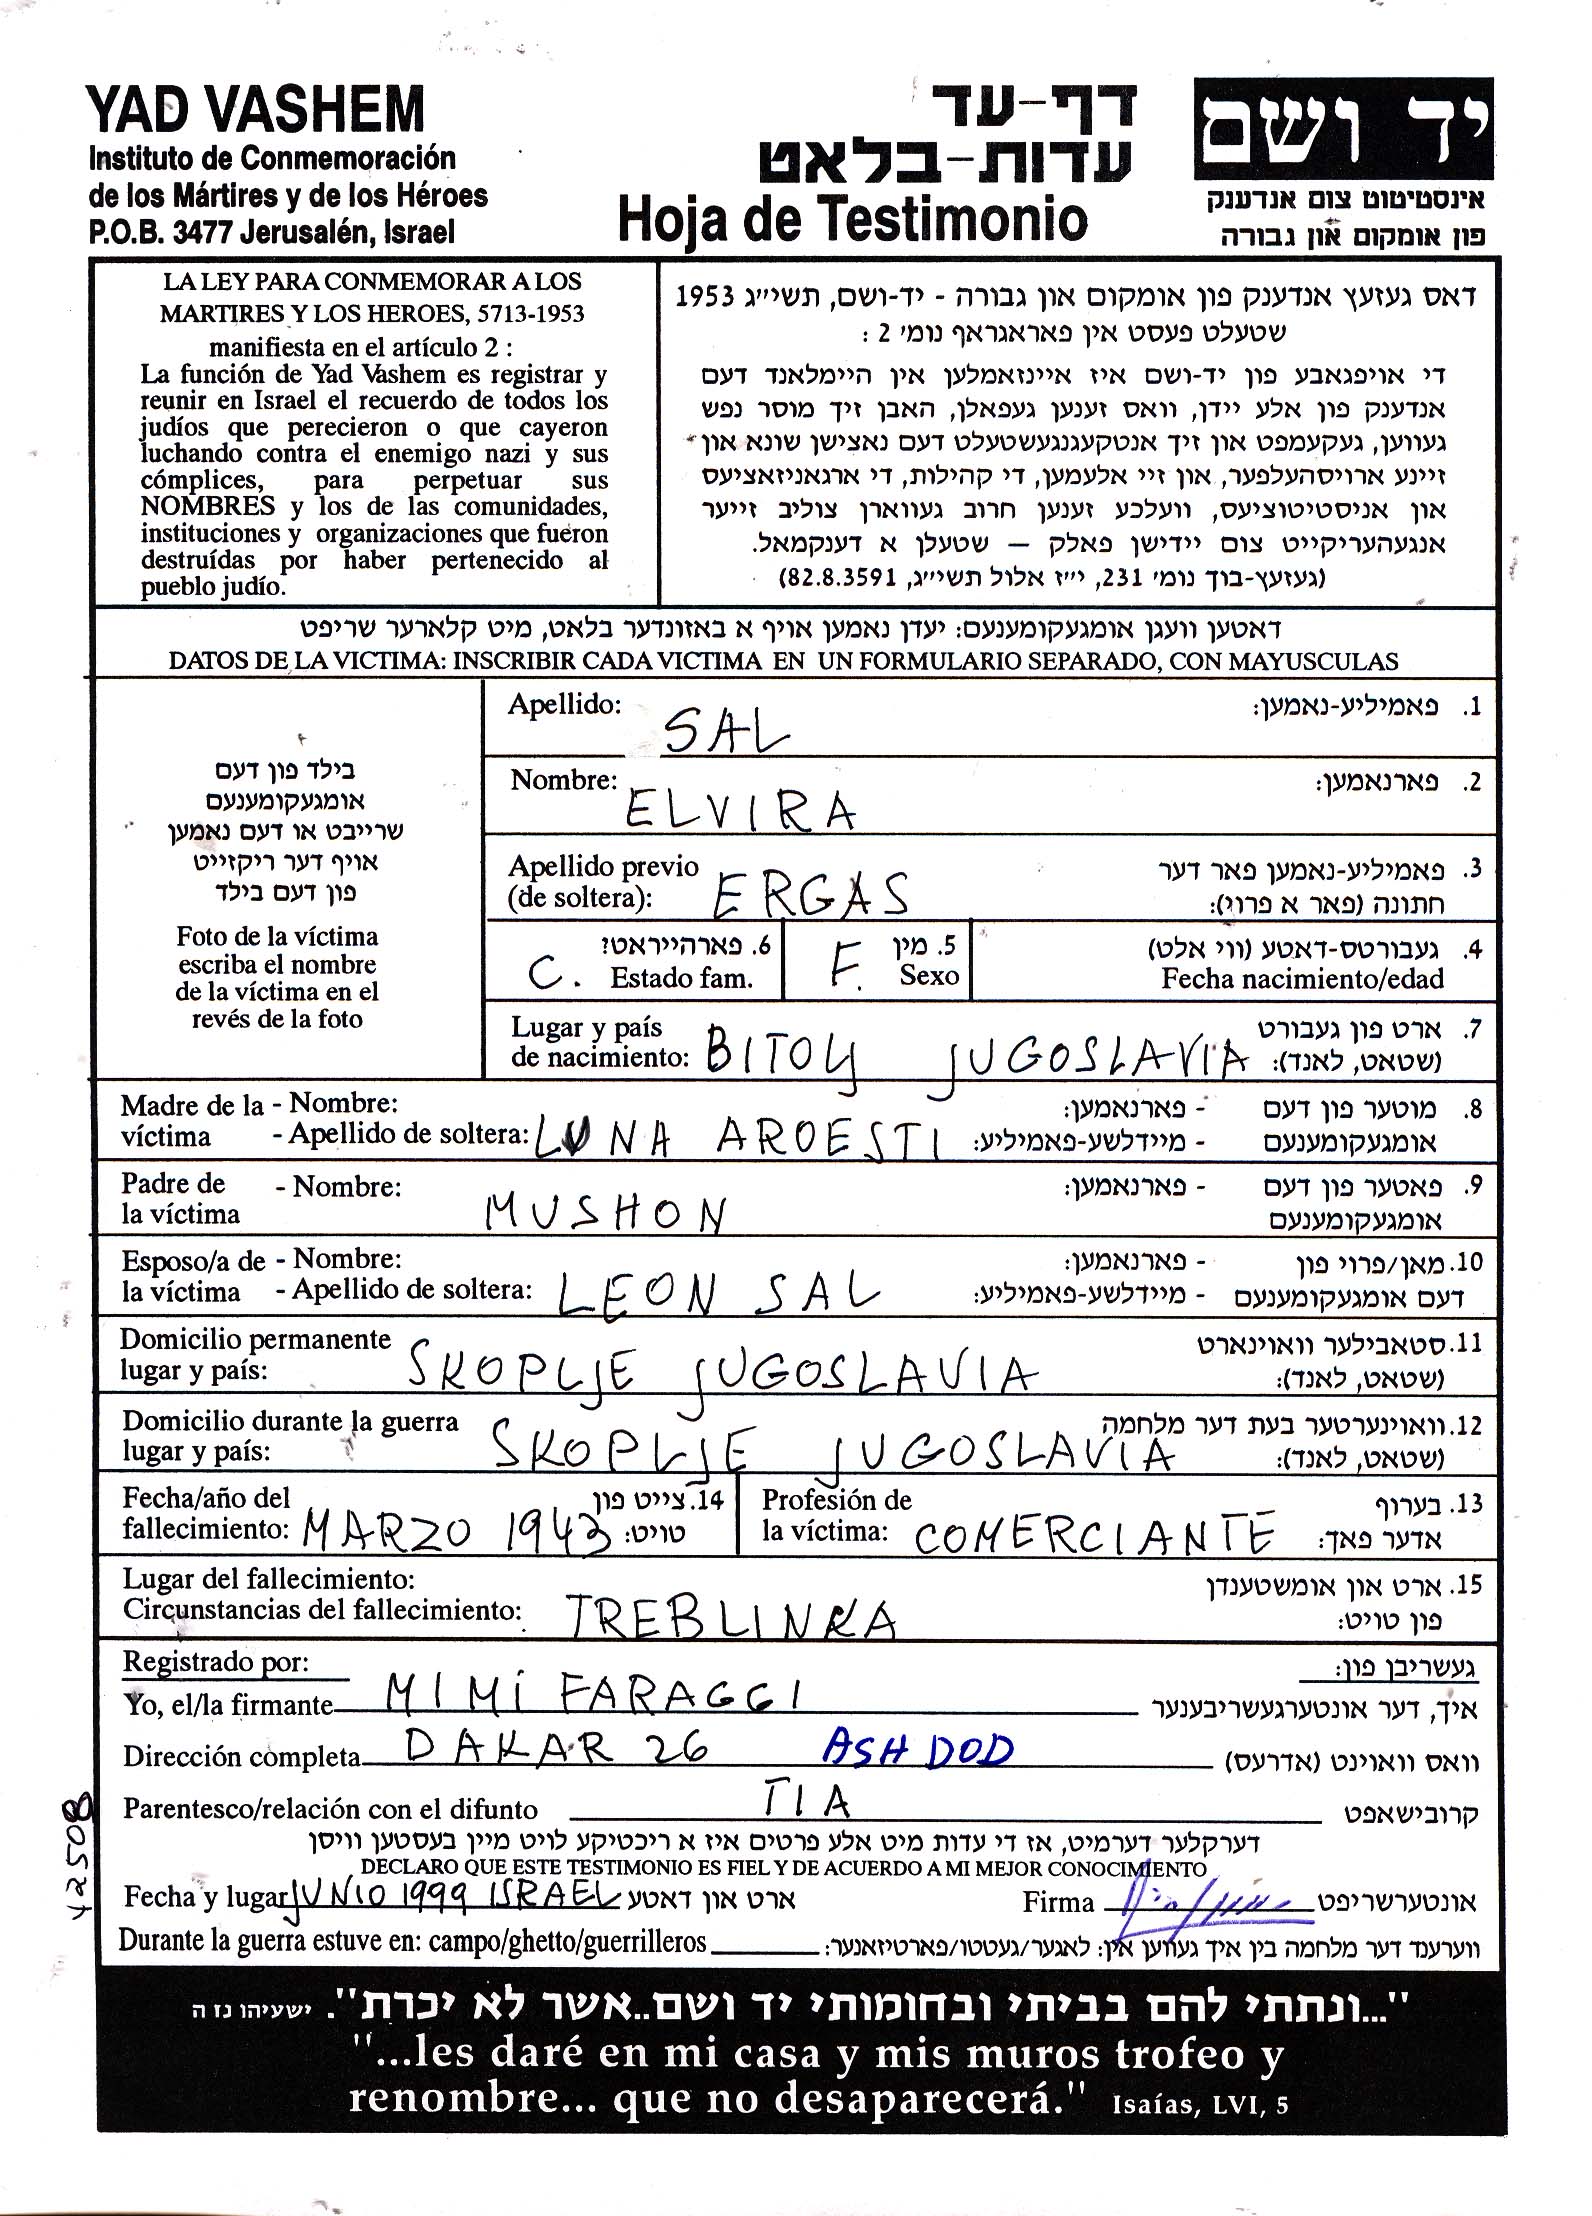 YAD VASHEM
Instituto de Conmemoración
de los Mártires y de los Héroes
P.O.B. 3477 Jerusalén, Israel
דף-עד
עדות-בלאט
Hoja de Testimonio
יד ושם
אינסטיטוט צום אנדענק
פון אומקום און גבורה
LA LEY PARA CONMEMORAR A LOS
MARTIRES Y LOS HEROES, 5713-1953
manifiesta en el artículo 2 :
La función de Yad Vashem es registrar y
reunir en Israel el recuerdo de todos los
judíos que perecieron o que cayeron
luchando contra el enemigo nazi y sus
cómplices, para perpetuar sus
NOMBRES y los de las comunidades,
instituciones y organizaciones que fueron
destruídas por haber pertenecido al
pueblo judío.
דאס געזעץ אנדענק פון אומקום און גבורה - יד-ושם, תשי״ג 1953
שטעלט פעסט אין פאראגראף נומ׳ 2 :
די אויפגאבע פון יד-ושם איז איינזאמלען אין היימלאנד דעם
אנדענק פון אלע יידן, וואס זענען געפאלן, האבן זיך מוסר נפש
געווען, געקעמפט און זיך אנטקעגנגעשטעלט דעם נאצישן שונא און
זיינע ארויסהעלפער, און זיי אלעמען, די קהילות, די ארגאניזאציעס
און אניסטיטוציעס, וועלכע זענען חרוב געווארן צוליב זייער
אנגעהעריקייט צום יידישן פאלק — שטעלן א דענקמאל.
(געזעץ-בוך נומ׳ 231, י״ז אלול תשי״ג, 82.8.3591)
דאטען וועגן אומגעקומענעם: יעדן נאמען אויף א באזונדער בלאט, מיט קלארער שריפט
DATOS DE LA VICTIMA: INSCRIBIR CADA VICTIMA EN UN FORMULARIO SEPARADO, CON MAYUSCULAS
בילד פון דעם
אומגעקומענעם
שרייבט או דעם נאמען
אויף דער ריקזייט
פון דעם בילד
Foto de la víctima
escriba el nombre
de la víctima en el
revés de la foto
Apellido: SAL 1. פאמיליע-נאמען:
Nombre: ELVIRA 2. פארנאמען:
Apellido previo 3. פאמיליע-נאמען פאר דער
(de soltera): ERGAS חתונה (פאר א פרוי):
6. פארהייראט? 5. מין 4. געבורטס-דאטע (ווי אלט)
C. Estado fam. F. Sexo Fecha nacimiento/edad
Lugar y país 7. ארט פון געבורט
de nacimiento: BITOLJ JUGOSLAVIA (שטאט, לאנד):
Madre de la - Nombre: - פארנאמען: 8. מוטער פון דעם
víctima - Apellido de soltera: LUNA AROESTI - מיידלשע-פאמיליע: אומגעקומענעם
Padre de - Nombre: - פארנאמען: 9. פאטער פון דעם
la víctima MUSHON אומגעקומענעם
Esposo/a de - Nombre: - פארנאמען: 10. מאן/פרוי פון
la víctima - Apellido de soltera: LEON SAL - מיידלשע-פאמיליע: דעם אומגעקומענעם
Domicilio permanente 11. סטאבילער וואוינארט
lugar y país: SKOPLJE JUGOSLAVIA (שטאט, לאנד):
Domicilio durante la guerra 12. וואוינערטער בעת דער מלחמה
lugar y país: SKOPLJE JUGOSLAVIA (שטאט, לאנד):
Fecha/año del 14. צייט פון Profesión de 13. בערוף
fallecimiento: MARZO 1943 טויט: la víctima: COMERCIANTE אדער פאך:
Lugar del fallecimiento: 15. ארט און אומשטענדן
Circunstancias del fallecimiento: TREBLINKA פון טויט:
Registrado por: געשריבן פון:
Yo, el/la firmante MIMI FARAGGI איך, דער אונטערגעשריבענער
Dirección completa DAKAR 26 ASHDOD וואס וואוינט (אדרעס)
Parentesco/relación con el difunto TIA קרובישאפט
דערקלער דערמיט, אז די עדות מיט אלע פרטים איז א ריכטיקע לויט מיין בעסטען וויסן
DECLARO QUE ESTE TESTIMONIO ES FIEL Y DE ACUERDO A MI MEJOR CONOCIMIENTO
Fecha y lugar JUNIO 1999 ISRAEL ארט און דאטע Firma אונטערשריפט
Durante la guerra estuve en: campo/ghetto/guerrilleros ווערענד דער מלחמה בין איך געווען אין: לאגער/געטטו/פארטיזאנער:
42508
"...ונתתי להם בביתי ובחומותי יד ושם..אשר לא יכרת". ישעיהו נז ה
"...les daré en mi casa y mis muros trofeo y
renombre... que no desaparecerá." Isaías, LVI, 5